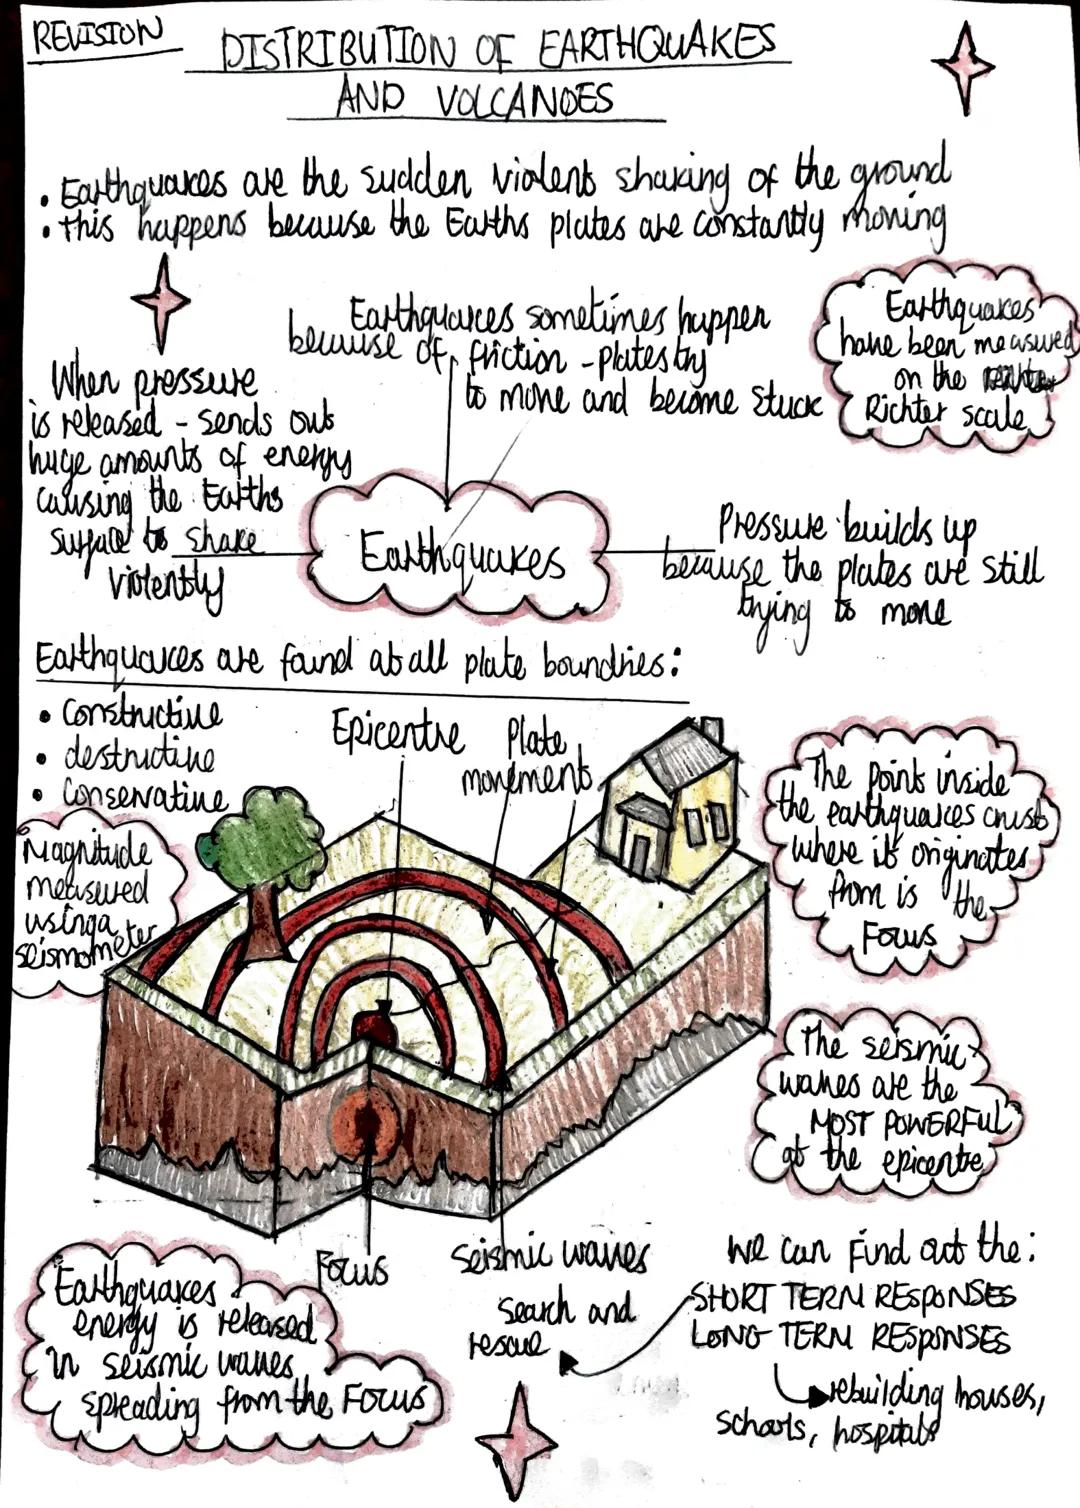 REVISION
DISTRIBUTION OF EARTHQUAKES
AND VOLCANOES
• Earthquakes are the sudden violent shaking of the ground
• this happens because the Earths plates are constantly moving
Earthquakes sometimes happen
because of friction - plates try
to move and become stuck
Earthquakes
have been measured
on the
Richter scale
When pressure
is released - sends out
huge amounts of energy
causing the Earths
surface to shake
violently
Earthquakes
Pressure builds up
because the plates are still
trying to move
Earthquakes are found at all plate boundries:
• Constructive
• destructive
• Conservative
Epicentre
Plate
movement
Magnitude
measured
using a
seismometer
The point inside
the earthquakes crust
where it originates
from is the
Focus
The seismic
waves are the
MOST POWERFUL
at the epicentre
Focus
Seismic waves
Earthquakes
energy is released
in seismic waves
spreading from the Focus
We can find out the:
SHORT TERM RESPONSES
LONG TERM RESPONSES
Search and
rescue
rebuilding houses,
schools, hospitals